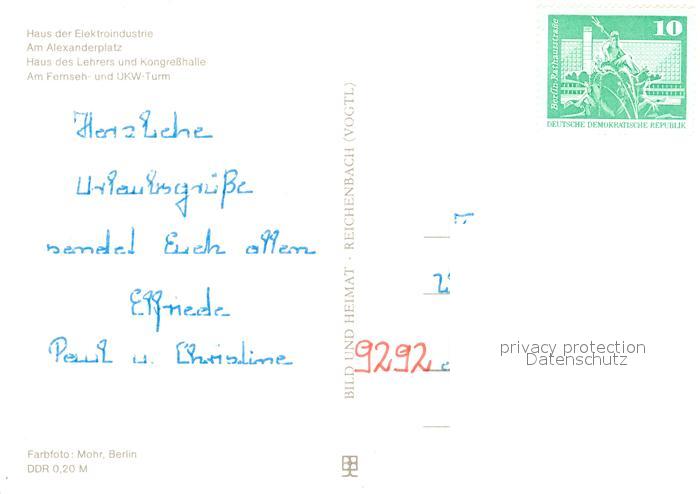 Haus der Elektroindustrie
Am Alexanderplatz
Haus des Lehrers und Kongreßhalle
Am Fernseh- und UKW-Turm
Herzliche
Urlaubsgrüße
sendet Euch allen
Elfriede
Paul u. Christine
Farbfoto: Mohr, Berlin
DDR 0,20 M
BILD UND HEIMAT · REICHENBACH (VOGTL)
Berlin-Rathausstraße
10
DEUTSCHE DEMOKRATISCHE REPUBLIK
9292
privacy protection
Datenschutz